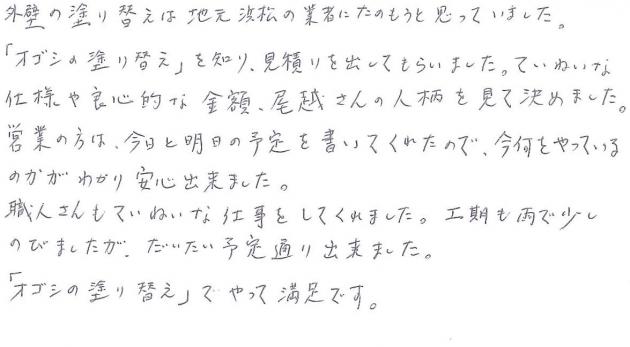 外壁の塗り替えは地元浜松の業者にたのもうと思っていました。
「オゴシの塗り替え」を知り、見積りを出してもらいました。ていねいな
仕様や良心的な金額、尾越さんの人柄を見て決めました。
営業の方は、今日と明日の予定を書いてくれたので、今何をやっている
のかがわかり安心出来ました。
職人さんもていねいな仕事をしてくれました。工期も雨で少し
のびましたが、だいたい予定通り出来ました。
「オゴシの塗り替え」でやって満足です。